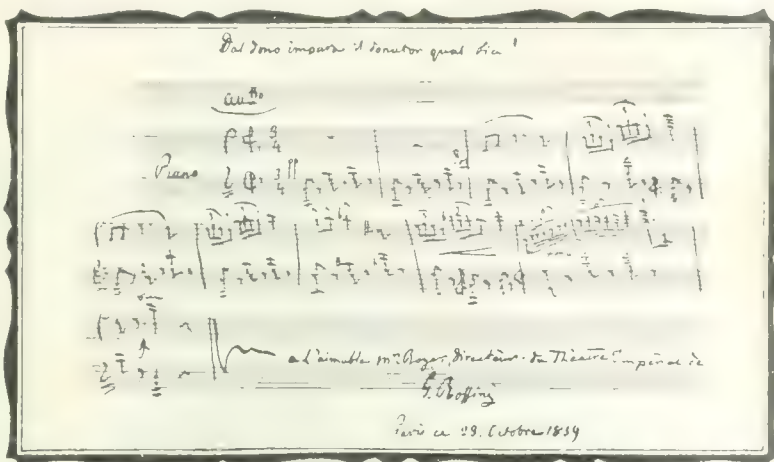 Dal dono impara il donator qual sia!
All.tto
Piano
a L'aimable Mr. Royer, Directeur du Théatre Impérial de
G. Rossini
Paris ce 29. Octobre